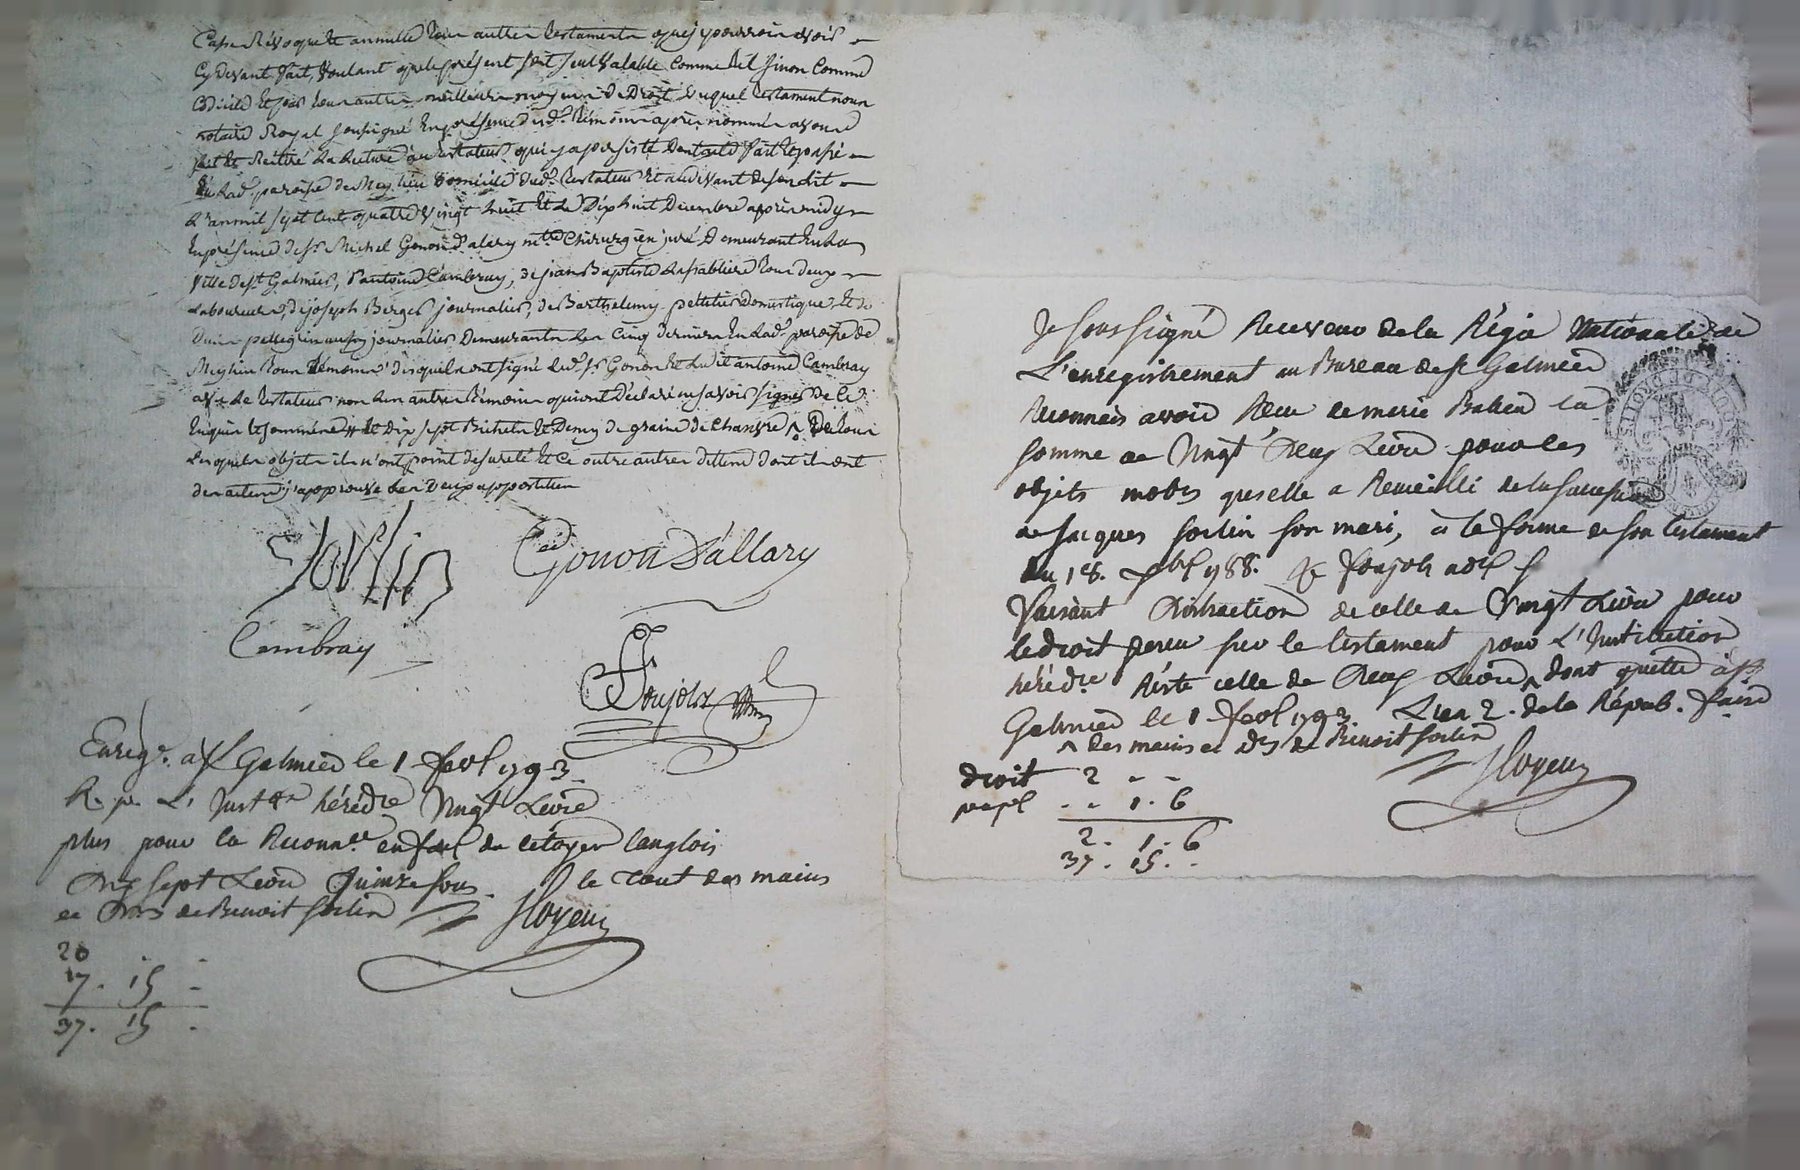 Casse Révoque et annulle tous autres testaments que j'y pourrois avoir
Cy devant fait, voulant que le présent soit seul valable comme tel sinon comme
codicile et par tous autres meilleurs moyens de Droit duquel testament nous
notaire Royal soussigné En présence des d. témoins après nommés avons
fait et Réitéré la lecture au testateur qui y a persisté Dont acte fait et passé
En lad. paroisse de Meylieu Domicile dud. testateur et au devant de son lit
L'an mil sept cent quatre vingt huit et le Dix huit Décembre après midy
En présence de Sr Michel Gonon d'alary mtre Chirurgien juré Demeurant En la
ville de St Galmier, d'antoine Cambray, de jean Baptiste tous deux
Laboureurs, de joseph Berger journalier, de Barthelemy domestique, et de
journalier Demeurants les cinq derniers En lad. paroisse de
Meylieu tous témoins desquels ont signé led. Sr Gonon et ledit antoine Cambray
avec le testateur non les autres témoins qui ont déclaré ne savoir signer de ce
Enquis et sommés et Dix sept Bichets et Demy de graine de chanvre De tous
lesquels objets ils n'ont point de sureté et ce outre autres dont ils ont
j'approuve les deux apostilles
Sorlin
Gonon D'allary
Cambray
Foujols
Enregé. à St Galmier le 1 1793
R. p. L' Instton hérédre Vingt Livre
plus pour la Reconnce du citoyen Langlois
Dix sept Livre Quinze sous le tout des mains
et Drs de Benoit Sorlin
20
17 . 15 -
37 . 15 .
Je soussigné Receveur de la Régie Nationale de
L'enregistrement au Bureau de St Galmier
Reconnais avoir Recu de marie la
somme de Vingt Deux Livre pour les
objets mobrs qu'elle a Recueilli de la succession
de Jacques Sorlin son mari, à la forme de son testament
du 18. Xbre 1788. Foujols
faisant Distraction de celle de Vingt Livre pour
le droit percu sur le testament pour L'Institution
hérédre Reste celle de Deux Livre, dont quitte à St
Galmier le 1 1793 L'an 2. de la Répub. faire
^ des mains et Drs de Benoit Sorlin
droit 2 - -
- - 1 . 6
2 . 1 . 6
37 . 15 . -